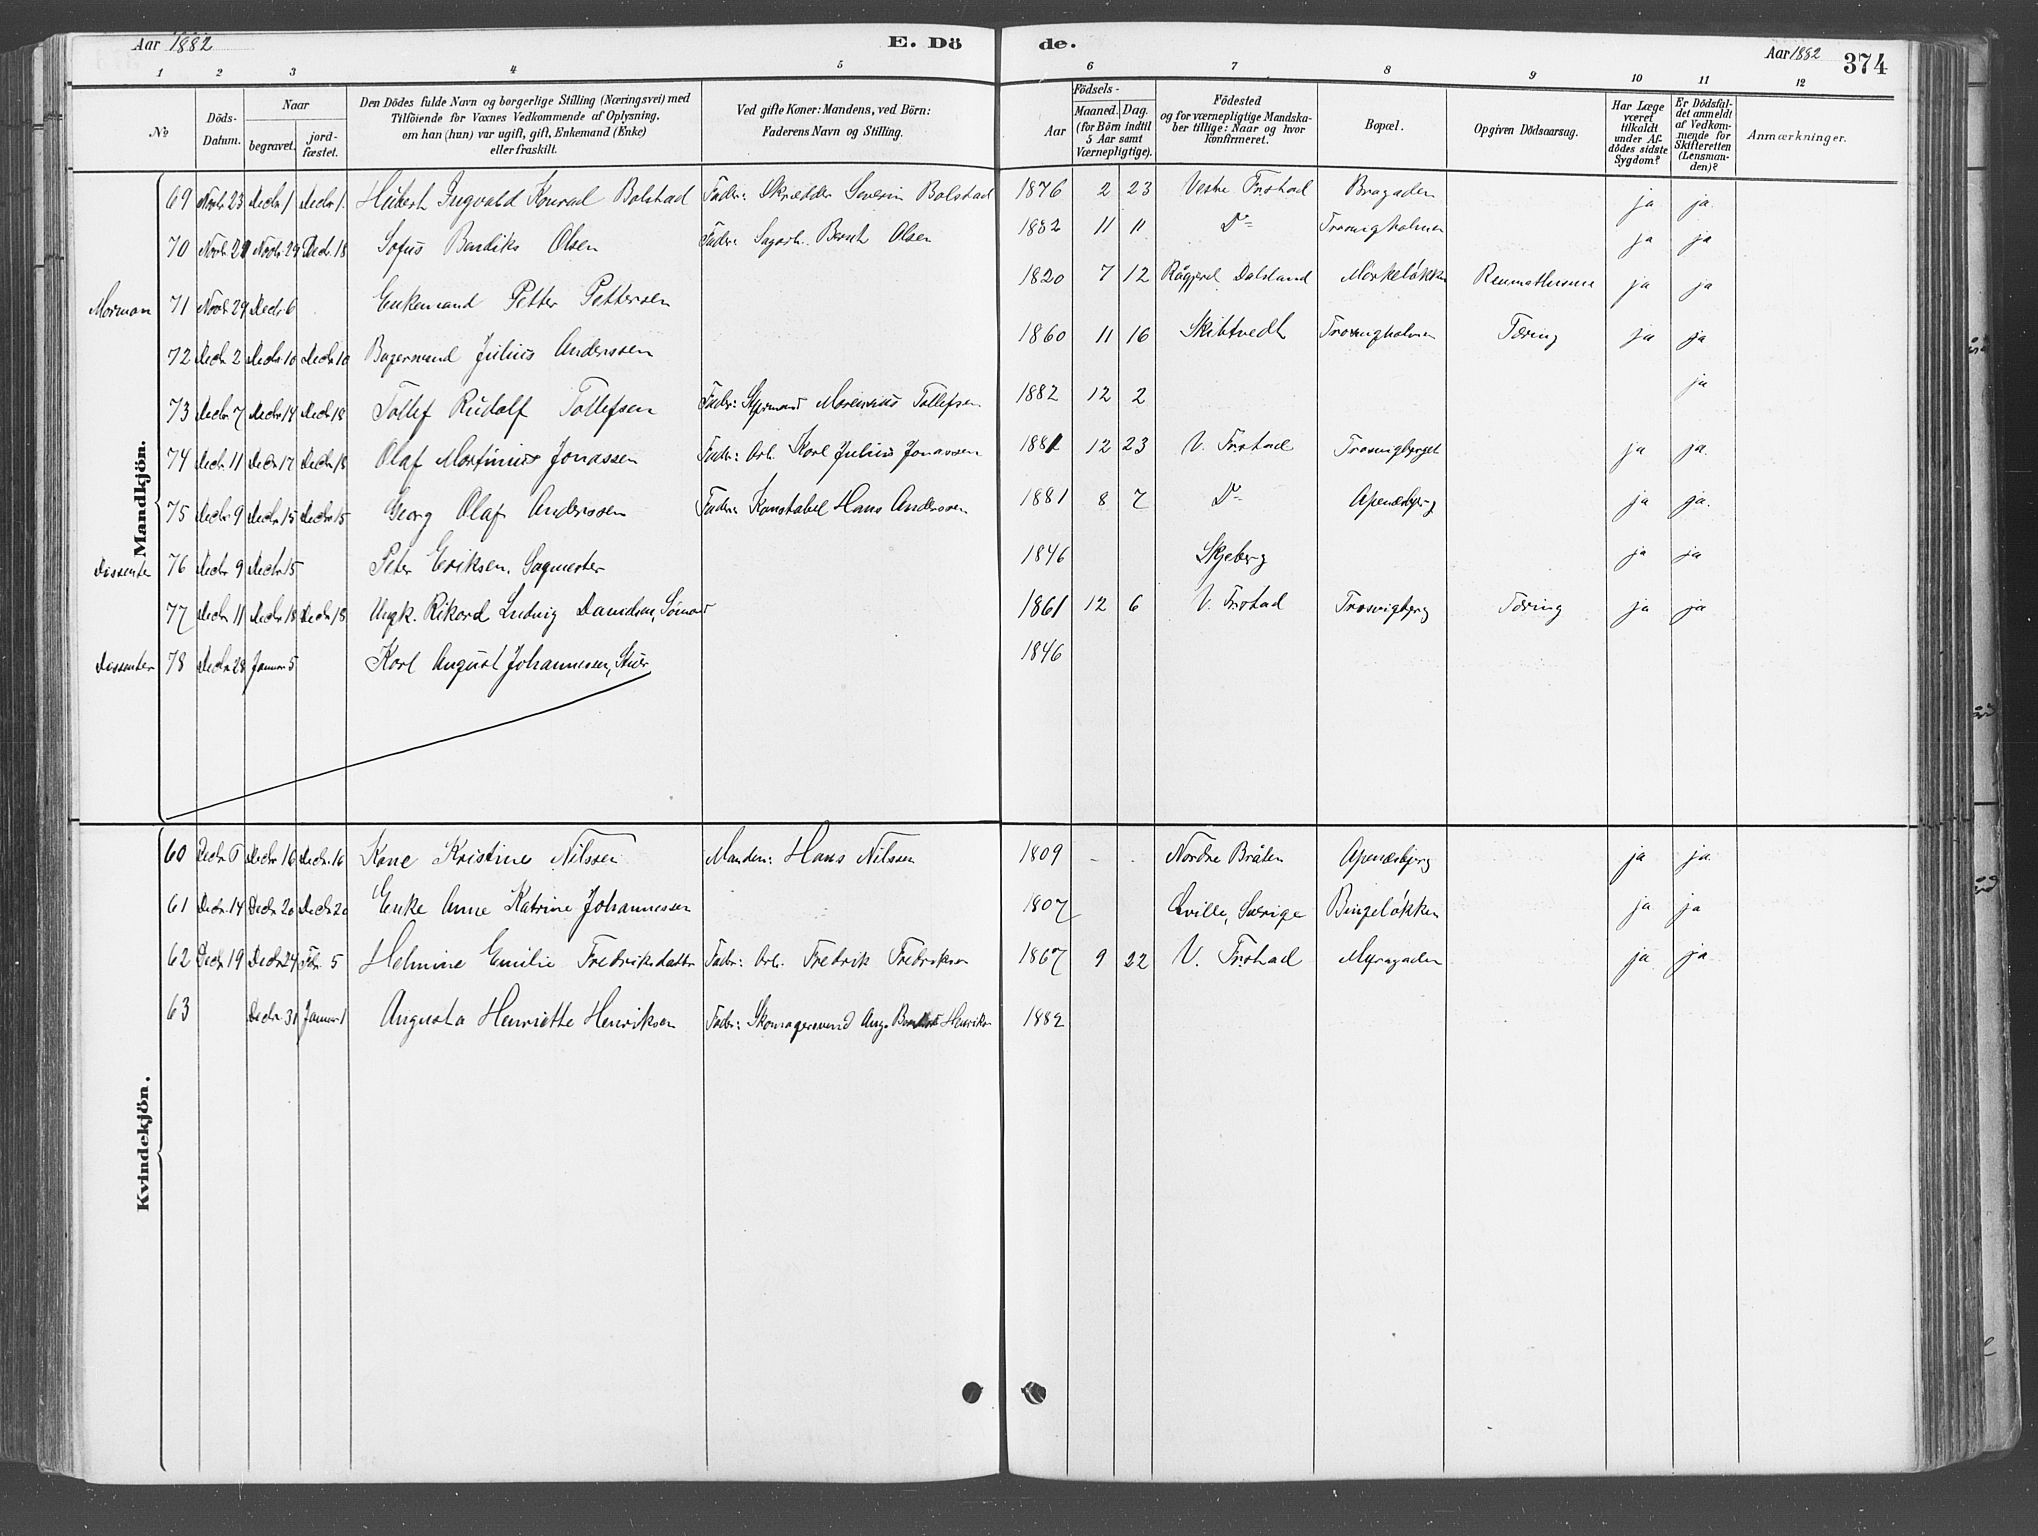 Aar 1882 E. Dö de. Aar 1882 374
1 2 3 4 5 6 7 8 9 10 11 12
No
Döds-Datum.
Naar
begravet.
jord-fæstet.
Den Dödes fulde Navn og borgerlige Stilling (Næringsvei) med
Tilföiende for Voxnes Vedkommende af Oplysning,
om han (hun) var ugift, gift, Enkemand (Enke)
eller fraskilt.
Ved gifte Koner: Mandens, ved Börn:
Faderens Navn og Stilling.
Födsels-
Aar
Maaned. Dag.
(for Börn indtil
5 Aar samt
Værnepligtige).
Födested
og for værnepligtige Mandska-
ber tillige: Naar og hvor
konfirmeret.
Bopæl.
Opgiven Dödsaarsag.
Har Læge
været
tilkaldt
under Af-
dödes sidste
Sygdom?
Er Dödsfal-
det anmeldt
af Vedkom-
mende for
Skifteretten
(Lensman-
den)?
Anmærkninger.
Mandkjön.
69 Novbr 23 Decbr 1 Decbr 1. Hubert Ingvald Konrad Bolstad Fader: Skrædder Severin Bolstad 1876 2 23 Vestre Frstad Bragaden ja ja.
70 Novbr 21 Novbr 29 Decbr 18 Sofus Bendiks Olsen Fader: Sagarb. Bernt Olsen 1882 11 11 Do Trosvigholmen ja ja
Mormon 71 Novbr 29 Decbr 6 Enkemand Petter Pettersen 1820 7 12 Råggerd Dalsland Mörkeløkken Reumathisme ja ja
72 Decbr 2 Decbr 10 Decbr 10 Bagersvend Julius Anderssen 1860 11 16 Skibtvedt Trosvigholmen Tæring ja ja
73 Decbr 7 Decbr 18 Decbr 18 Tollef Rudolf Tollefsen Fader: Styrmand Morentius Tollefsen 1882 12 2 ja
74 Decbr 11 Decbr 17 Decbr 18 Olaf Martinius Jonassen Fader: Arb. Karl Julius Jonassen 1881 12 23 V. Frstad Trosvigberget ja ja.
75 Decbr 9 Decbr 15 Decbr 15 Georg Olaf Anderssen Fader: Konstabel Hans Anderssen 1881 8 7 Do Apenæsbjerg ja ja.
Dissenter 76 Decbr 9 Decbr 15 Peter Eriksen, Sagmester 1846 Skjeberg ja ja
77 Decbr 11 Decbr 18 Decbr 18 Ungk. Rikard Ludvig Davidsen, Sömand 1861 12 6 V. Frstad Trosvigberg Tæring ja ja
Dissenter 78 Decbr 28 Januar 5 Karl August Johannessen, Stuer 1846
Kvindekjön.
60 Decbr Decbr 16 Decbr 16 Kone Kristine Nilssen Manden: Hans Nilssen 1809 - - Nordre Bråten Apenæsbjerg ja ja.
61 Decbr 14 Decbr 20 Decbr 20 Enke Anne Katrine Johannessen 1807 Qville, Sverige Bingeløkken ja ja
62 Decbr 19 Decbr 24 Febr. 5 Helmine Emilie Fredriksdatter Fader: Arb. Fredrik Fredriksen 1867 9 22 V. Frstad Myragaden ja ja
63 Decbr 31 Januar 1 Augusta Henriette Henriksen Fader: Skomagersvend Aug. Henriksen 1882